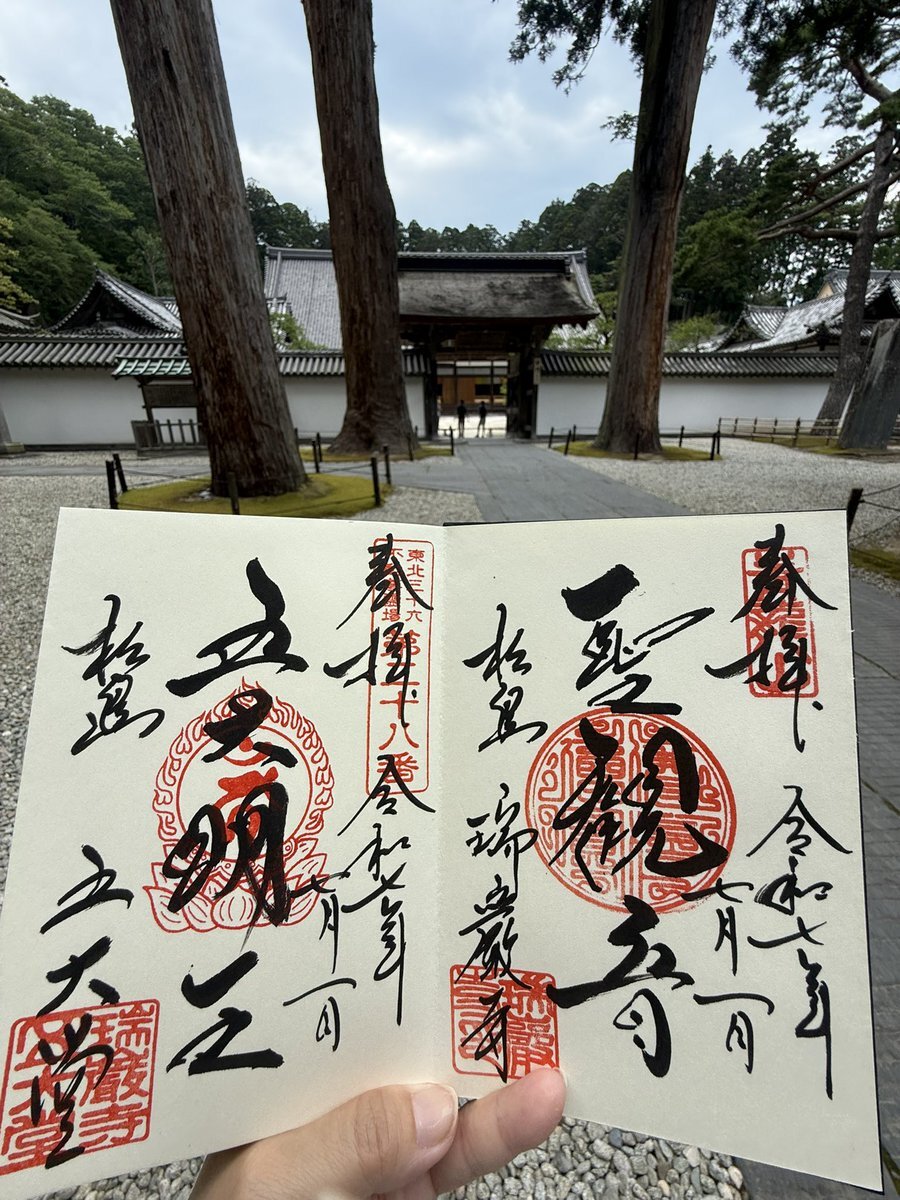 奉拝
令和七年
七月一日
聖観音
松島 瑞巌寺
瑞巌
奉拝
東北三十六
不動尊霊場
第二十八番
令和七年
七月一日
五大明王
松島
五大堂
瑞巌寺
五大堂